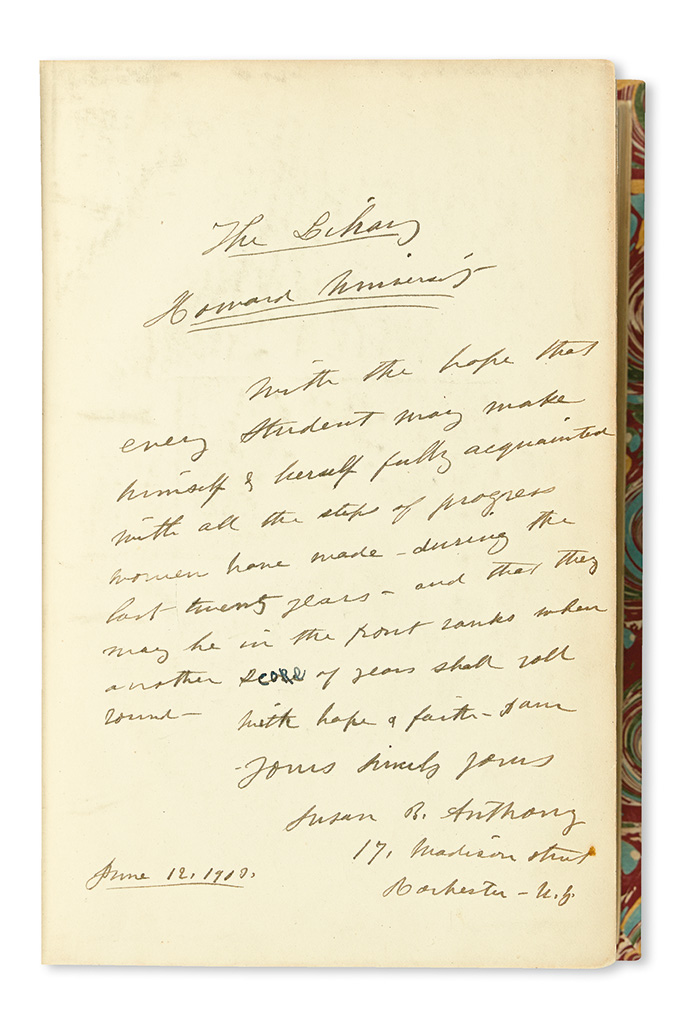 The Library
Howard University
With the hope that
every student may make
himself & herself fully acquainted
with all the steps of progress
women have made - during the
last twenty years - and that they
may be in the front ranks when
another score of years shall roll
round -
With hope & faith - I am
Yours sincerely yours
Susan B. Anthony
17, Madison street
Rochester - N.Y.
June 12, 1903.